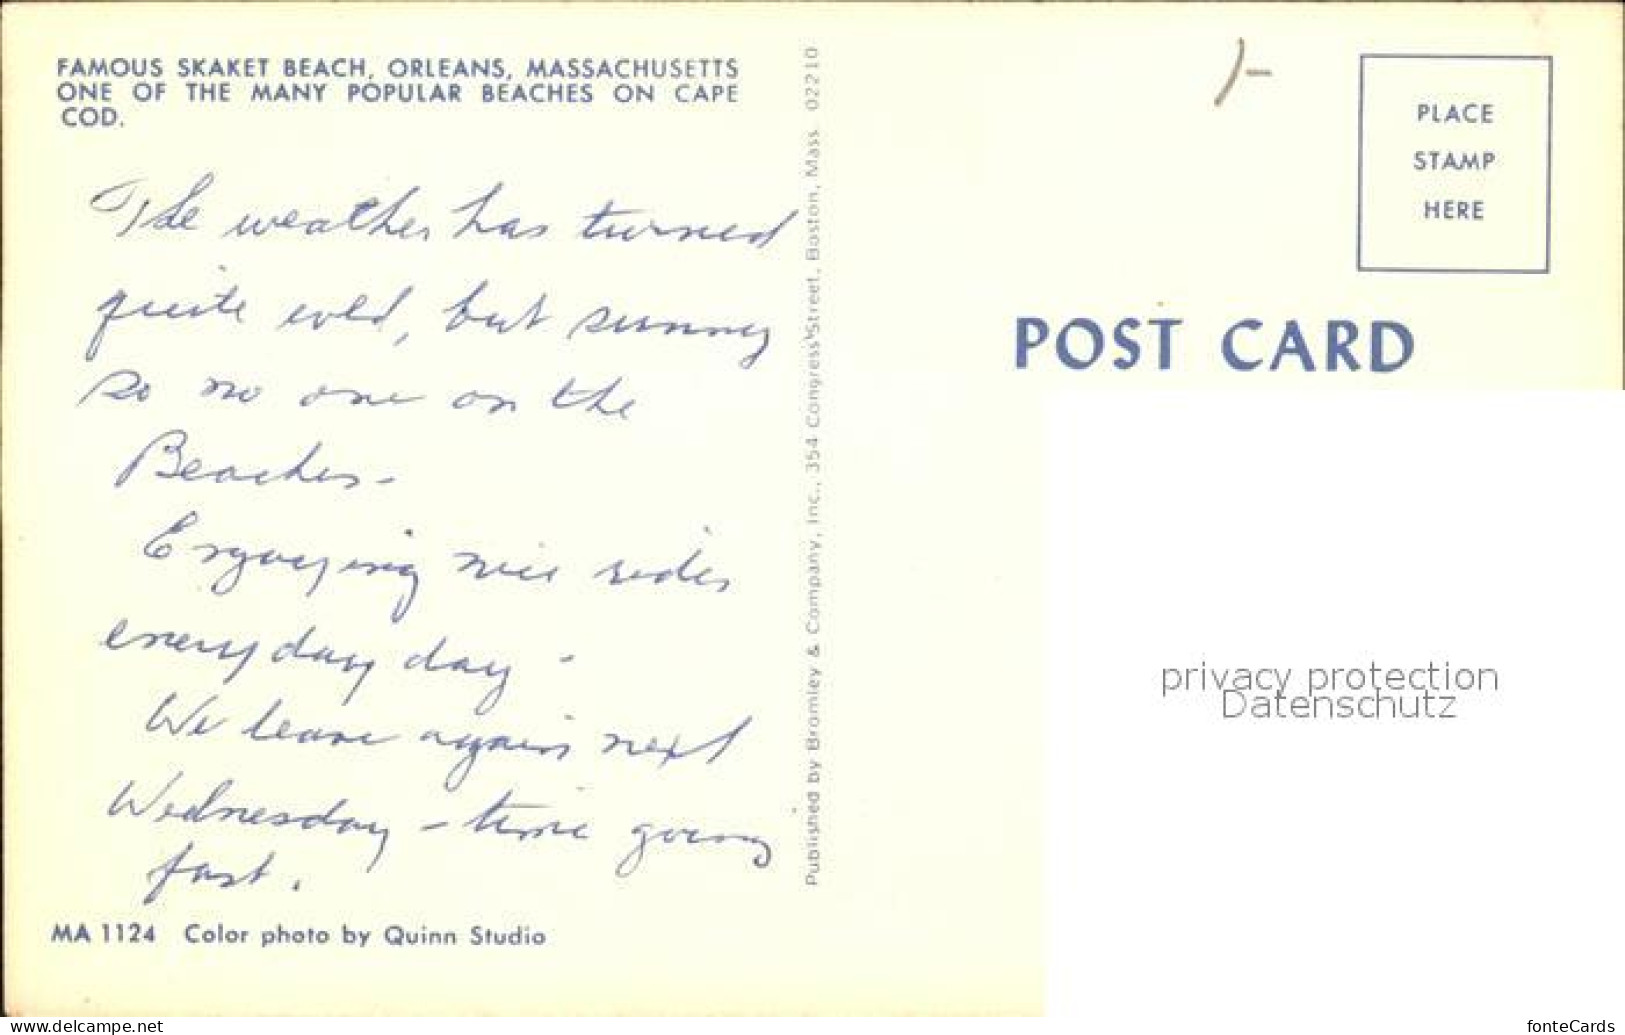 FAMOUS SKAKET BEACH, ORLEANS, MASSACHUSETTS
ONE OF THE MANY POPULAR BEACHES ON CAPE
COD.
The weather has turned
quite cold, but sunny
so no one on the
Beaches -
Engoying nice rides
every day day -
We leave again next
Wednesday - time going
fast.
MA 1124 Color photo by Quinn Studio
Published by Bromley & Company, Inc., 354 Congress Street, Boston, Mass. 02210
1-
PLACE
STAMP
HERE
POST CARD
privacy protection
Datenschutz
www.delcampe.net
fonteCards